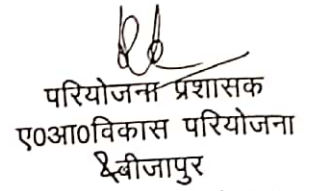 परियोजना प्रशासक
ए0आ0विकास परियोजना
बीजापुर